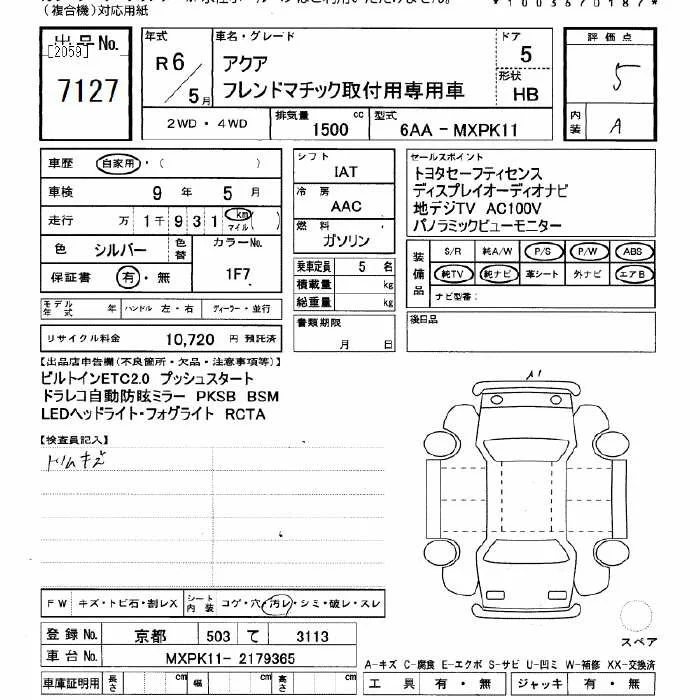 (複合機)対応用紙
出品No. [2059] 7127
年式 R6/5月
車名・グレード アクア
フレンドマチック取付用専用車
ドア 5
形状 HB
評価点 5
内装 A
2WD・4WD 排気量 1500 cc 型式 6AA-MXPK11
車歴 自家用・( )
車検 9年 5月
走行 万1千931 km マイル ( )
色 シルバー 色替 カラーNo. 1F7
保証書 有・無
モデル年式 年 ハンドル 左・右 ディーラー・並行
リサイクル料金 10,720 円 預託済
シフト IAT
冷房 AAC
燃料 ガソリン
乗車定員 5 名
積載量 kg
総重量 kg
書類期限 月 日
セールスポイント
トヨタセーフティセンス
ディスプレイオーディオナビ
地デジTV AC100V
パノラミックビューモニター
装備品 S/R 純A/W P/S P/W ABS
純TV 純ナビ 革シート 外ナビ エアB
ナビ型番:
後日品
【出品店申告欄(不良箇所・欠品・注意事項等)】
ビルトインETC2.0 プッシュスタート
ドラレコ自動防眩ミラー PKSB BSM
LEDヘッドライト・フォグライト RCTA
【検査員記入】
トリムキズ
A1
FW キズ・トビ石・割レX シート内装 コゲ・穴・汚レ・シミ・破レ・スレ
登録No. 京都 503 て 3113
車台No. MXPK11-2179365
車庫証明用 長さ cm 幅 cm 高さ cm
スペア
A-キズ C-腐食 E-エクボ S-サビ U-凹ミ W-補修 XX-交換済
工具 有・無 ジャッキ 有・無